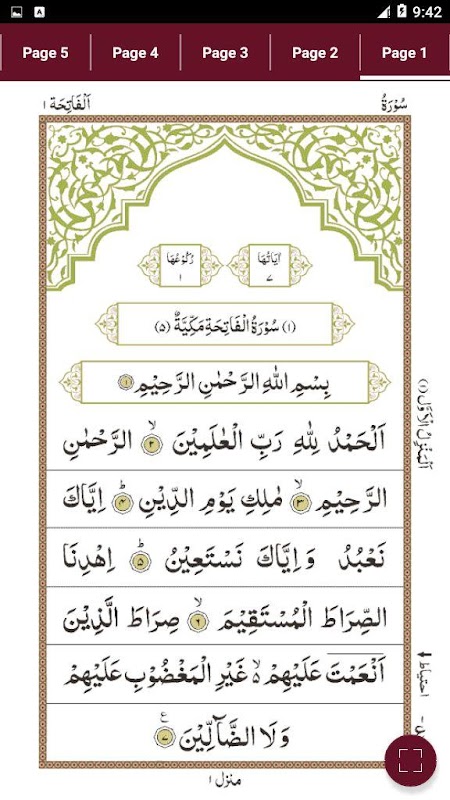 9:42
Page 5 Page 4 Page 3 Page 2 Page 1
سُوْرَةُ اَلْفَاتِحَة ١
اٰيَاتُهَا ٧ رُكُوْعُهَا ١
(١) سُوْرَةُ الْفَاتِحَةِ مَكِّيَّةٌ (٥)
بِسْمِ اللّٰهِ الرَّحْمٰنِ الرَّحِيْمِ ١
اَلْحَمْدُ لِلّٰهِ رَبِّ الْعٰلَمِيْنَ ۙ ٢ الرَّحْمٰنِ
الرَّحِيْمِ ۙ ٣ مٰلِكِ يَوْمِ الدِّيْنِ ؕ ٤ اِيَّاكَ
نَعْبُدُ وَاِيَّاكَ نَسْتَعِيْنُ ؕ ٥ اِهْدِنَا
الصِّرَاطَ الْمُسْتَقِيْمَ ۙ ٦ صِرَاطَ الَّذِيْنَ
اَنْعَمْتَ عَلَيْهِمْ ۙ۬ غَيْرِ الْمَغْضُوْبِ عَلَيْهِمْ
وَلَا الضَّآلِّيْنَ ٧ ع
اَلْمَنْزِلُ الْاَوَّلُ (١)
احتياط
منزل ١